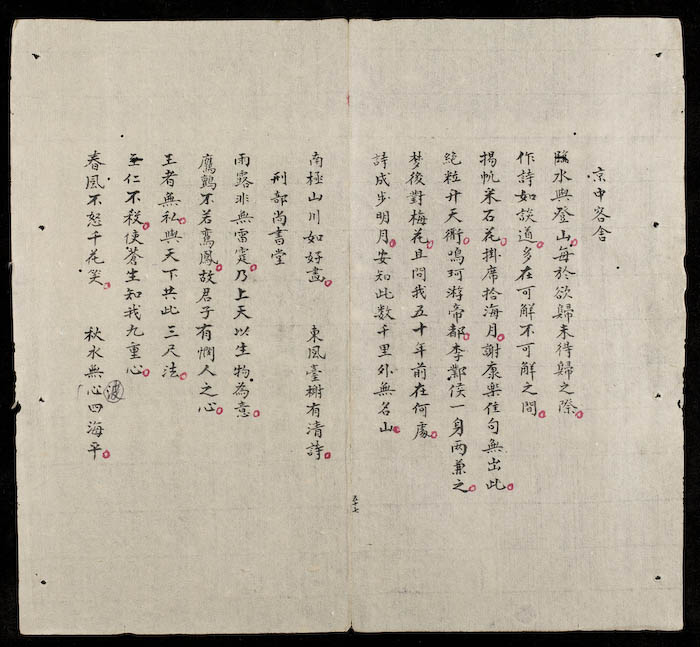 京申客舍
臨水與登山每於欲歸未待歸之際
作詩如談道多在可解不可解之間
揚帆采石花掛席拾海月謝康樂佳句無出此
絕粒升天衢鳴珂游帝都李鄴侯一身兩兼之
梦後對梅花且問我五十年前在何處
詩成步明月安知此数千里外無名山
五十七
南極山川如好畫 東風臺榭有清詩
刑部尚書堂
雨露非無雷霆乃上天以生物為意
鷹鸇不若鸞鳳故君子有憫人之心
王者無私與天下共此三尺法
至仁不殺使蒼生知我九重心
春風不怒千花笑 秋水無心四海平
波